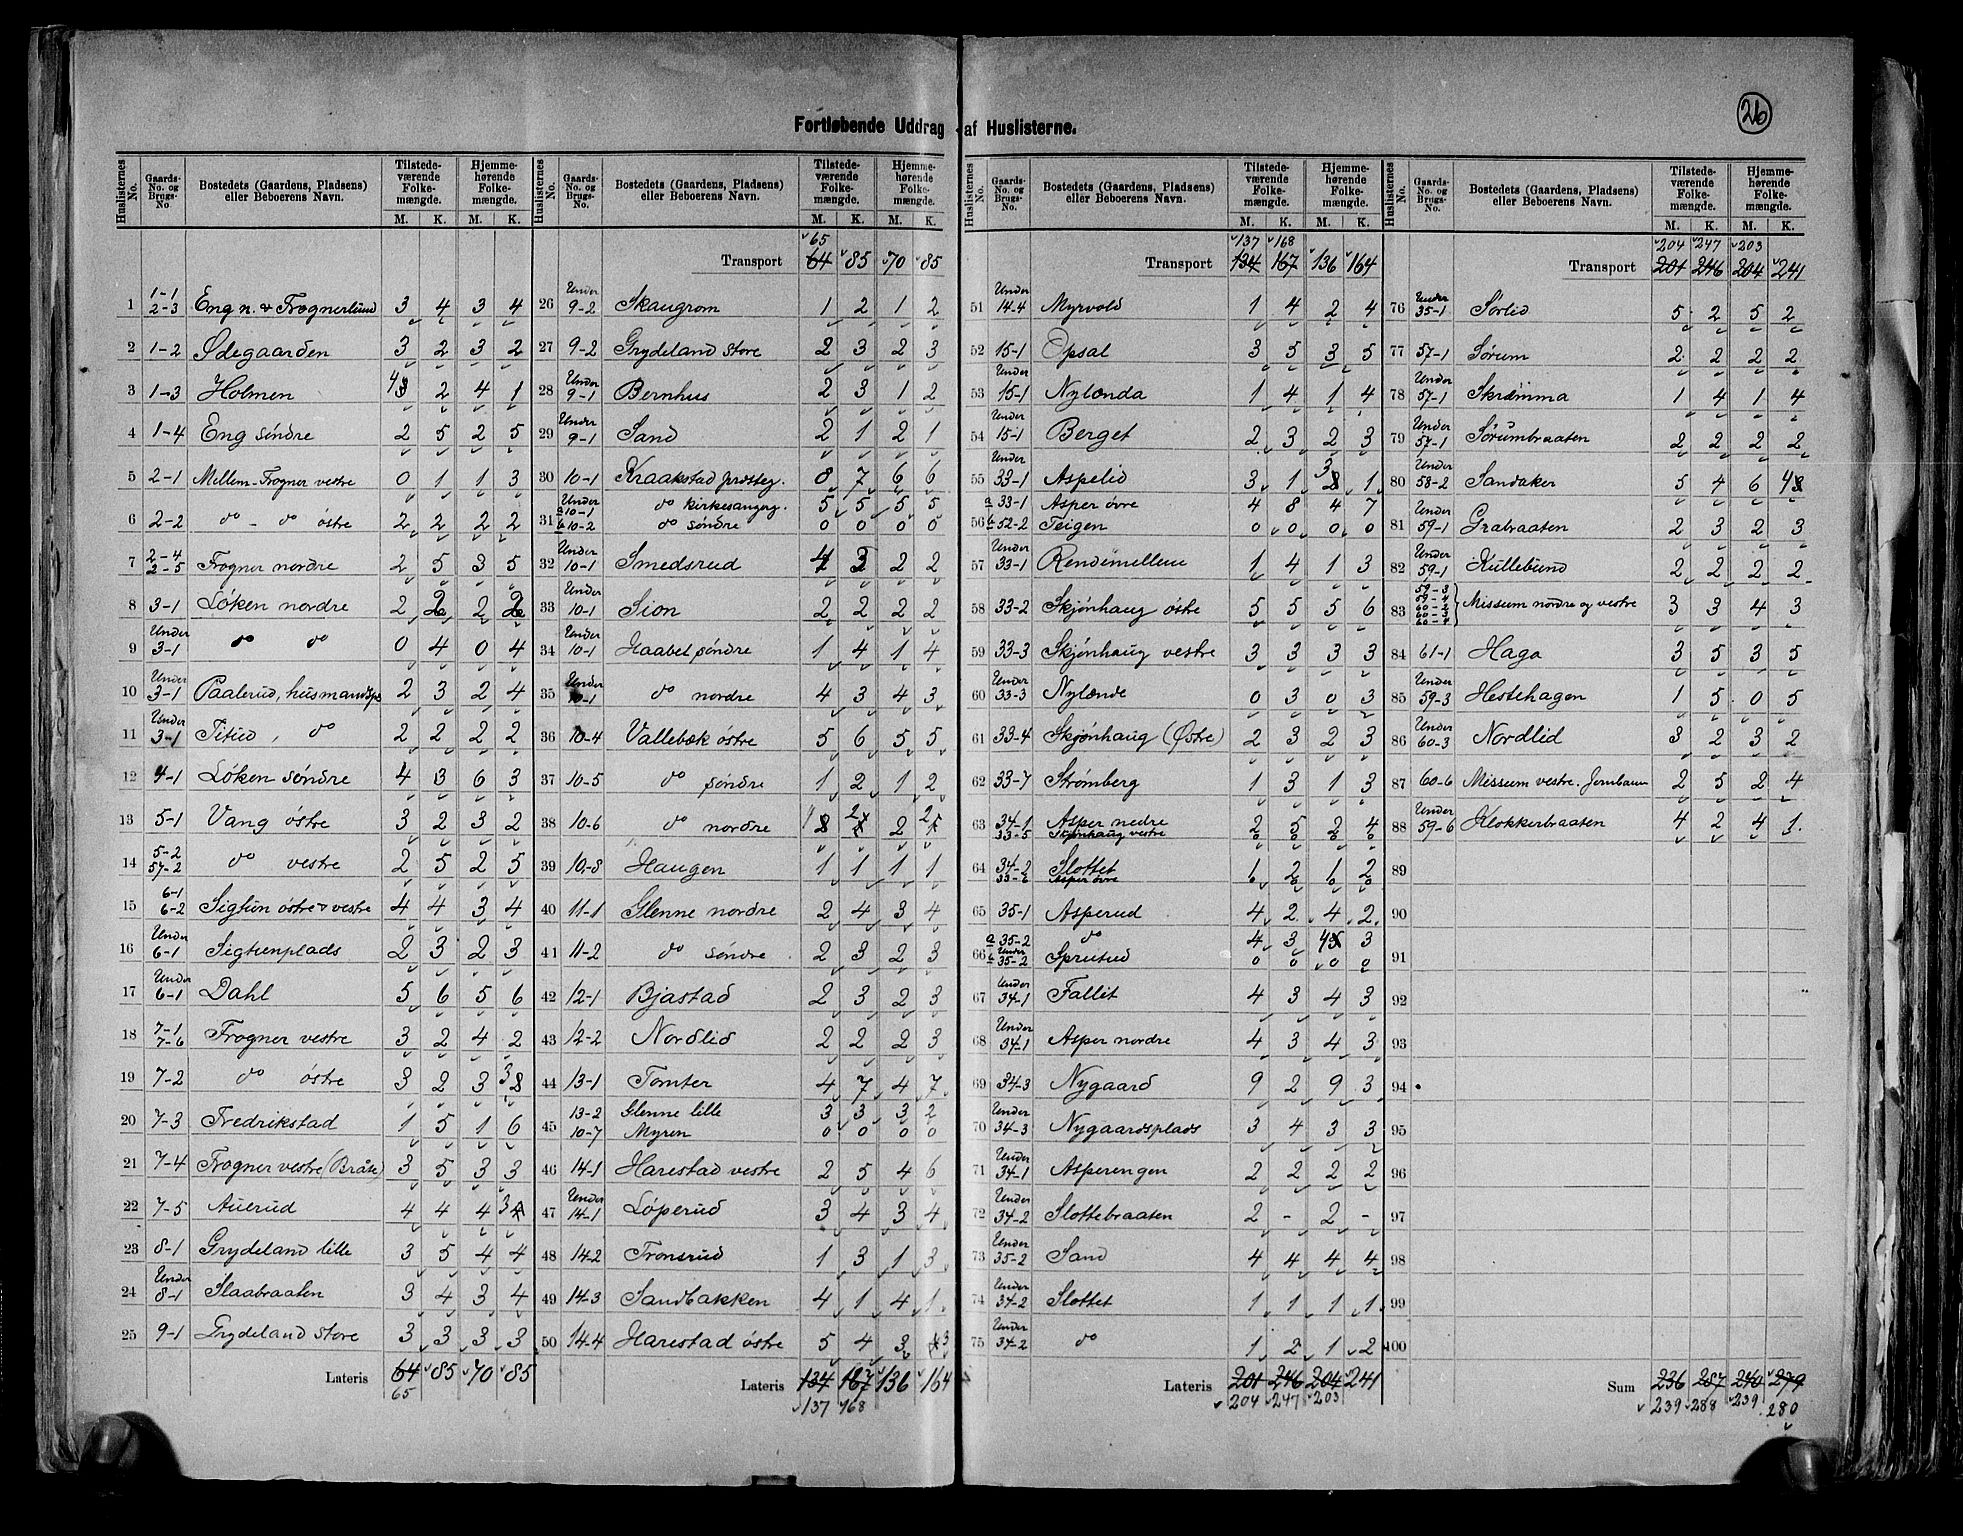 26
Fortløbende Uddrag af Huslisterne.
Huslisternes No. | Gaards-No. og Brugs-No. | Bostedets (Gaardens, Pladsens) eller Beboerens Navn. | Tilstedeværende Folkemængde. M. K. | Hjemmehørende Folkemængde. M. K.
1 | 1-1 2-3 | Eng n. & Frognerlund | 3 | 4 | 3 | 4
2 | 1-2 | Ødegaarden | 3 | 2 | 3 | 2
3 | 1-3 | Holmen | 4 | 2 | 4 | 1
4 | 1-4 | Eng søndre | 2 | 5 | 2 | 5
5 | 2-1 | Mellem-Frogner vestre | 0 | 1 | 1 | 3
6 | 2-2 | do - do østre | 2 | 2 | 2 | 2
7 | 2-4 2-5 | Frogner nordre | 2 | 5 | 3 | 5
8 | 3-1 | Løken nordre | 2 | 2 | 2 | 2
9 | Under 3-1 | do do | 0 | 4 | 0 | 4
10 | Under 3-1 | Paalerud, husmandspl | 2 | 3 | 2 | 4
11 | Under 3-1 | Titud, do | 2 | 2 | 2 | 2
12 | 4-1 | Løken søndre | 4 | 3 | 6 | 3
13 | 5-1 | Vang østre | 3 | 2 | 3 | 2
14 | 5-2 57-2 | do vestre | 2 | 5 | 2 | 5
15 | 6-1 6-2 | Sigtun østre & vestre | 4 | 4 | 3 | 4
16 | Under 6-1 | Sigtunplads | 2 | 3 | 2 | 3
17 | Under 6-1 | Dahl | 5 | 6 | 5 | 6
18 | 7-1 7-6 | Frogner vestre | 3 | 2 | 4 | 2
19 | 7-2 | do østre | 3 | 2 | 3 | 3
20 | 7-3 | Fredrikstad | 1 | 5 | 1 | 6
21 | 7-4 | Frogner vestre (Bråte) | 3 | 5 | 3 | 3
22 | 7-5 | Auerud | 4 | 4 | 4 | 3
23 | 8-1 | Grydeland lille | 3 | 5 | 4 | 4
24 | Under 8-1 | Slaabraaten | 3 | 4 | 3 | 4
25 | 9-1 | Grydeland store | 3 | 3 | 3 | 3
Lateris | 64 | 85 | 70 | 85
65
Huslisternes No. | Gaards-No. og Brugs-No. | Bostedets (Gaardens, Pladsens) eller Beboerens Navn. | Tilstedeværende Folkemængde. M. K. | Hjemmehørende Folkemængde. M. K.
65
Transport | 64 | 85 | 70 | 85
26 | Under 9-2 | Skaugrom | 1 | 2 | 1 | 2
27 | 9-2 | Grydeland store | 2 | 3 | 2 | 3
28 | Under 9-1 | Bernhus | 2 | 3 | 1 | 2
29 | Under 9-1 | Sand | 2 | 1 | 2 | 1
30 | 10-1 | Kraakstad præsteg. | 8 | 7 | 6 | 6
31 | Under a 10-1 | do kirkesangerg. | 5 | 5 | 5 | 5
b 10-2 | do søndre | 0 | 0 | 0 | 0
32 | Under 10-1 | Smedsrud | 4 | 3 | 2 | 2
33 | Under 10-1 | Sion | 2 | 2 | 2 | 2
34 | Under 10-1 | Haabet søndre | 1 | 4 | 1 | 4
35 | Under 10-1 | do nordre | 4 | 3 | 4 | 3
36 | 10-4 | Vallebæk østre | 5 | 6 | 5 | 5
37 | 10-5 | do søndre | 1 | 2 | 1 | 2
38 | 10-6 | do nordre | 2 | 2 | 2
39 | 10-8 | Haugen | 1 | 1 | 1 | 1
40 | 11-1 | Glenne nordre | 2 | 4 | 3 | 4
41 | 11-2 | do søndre | 2 | 3 | 2 | 3
42 | 12-1 | Bjastad | 2 | 3 | 2 | 3
43 | 12-2 | Nordlid | 2 | 2 | 2 | 3
44 | 13-1 | Tomter | 4 | 7 | 4 | 7
45 | 13-2 | Glenne lille | 3 | 3 | 3 | 2
10-7 | Myren | 0 | 0 | 0 | 0
46 | 14-1 | Harestad vestre | 2 | 5 | 4 | 6
47 | Under 14-1 | Løperud | 3 | 4 | 3 | 4
48 | 14-2 | Tronsrud | 1 | 3 | 1 | 3
49 | 14-3 | Sandbakken | 4 | 1 | 4 | 1
50 | 14-4 | Harestad østre | 5 | 4 | 3 | 3
Lateris | 134 | 167 | 136 | 164
137 168
Huslisternes No. | Gaards-No. og Brugs-No. | Bostedets (Gaardens, Pladsens) eller Beboerens Navn. | Tilstedeværende Folkemængde. M. K. | Hjemmehørende Folkemængde. M. K.
137 168
Transport | 134 | 167 | 136 | 164
51 | Under 14-4 | Myrvold | 1 | 4 | 2 | 4
52 | 15-1 | Opsal | 3 | 5 | 3 | 5
53 | Under 15-1 | Nylænda | 1 | 4 | 1 | 4
54 | Under 15-1 | Berget | 2 | 3 | 2 | 3
55 | Under 33-1 | Aspelid | 3 | 1 | 3 | 1
56 | a 33-1 | Asper øvre | 4 | 8 | 4 | 7
b 52-2 | Teigen | 0 | 0 | 0 | 0
57 | Under 33-1 | Rendemellem | 1 | 4 | 1 | 3
58 | 33-2 | Skjønhaug østre | 5 | 5 | 5 | 6
59 | 33-3 | Skjønhaug vestre | 3 | 3 | 3 | 3
60 | Under 33-3 | Nylænde | 0 | 3 | 0 | 3
61 | 33-4 | Skjønhaug (Østre) | 2 | 3 | 2 | 3
62 | 33-7 | Strømberg | 1 | 3 | 1 | 3
63 | 34-1 33-5 | Asper nedre Skjønhaug vestre | 2 | 5 | 2 | 4
64 | 34-2 33-6 | Slottet Asper øvre | 6 | 2 | 6 | 2
65 | 35-1 | Asperud | 4 | 2 | 4 | 2
66 | a 35-2 | do | 4 | 3 | 4 | 3
b Under 35-2 | Sprutud | 0 | 0 | 0 | 0
67 | Under 34-1 | Fallit | 4 | 3 | 4 | 3
68 | Under 34-1 | Asper nordre | 4 | 3 | 4 | 3
69 | 34-3 | Nygaard | 9 | 2 | 9 | 3
70 | Under 34-3 | Nygaardsplads | 3 | 4 | 3 | 3
71 | Under 34-1 | Asperengen | 2 | 2 | 2 | 2
72 | Under 34-2 | Slottebraaten | 2 | - | 2 | -
73 | Under 35-2 | Sand | 4 | 4 | 4 | 4
74 | Under 34-2 | Slottet | 1 | 1 | 1 | 1
75 | Under 34-2 | do | 1 | 2 | 1 | 2
Lateris | 201 | 246 | 204 | 241
204 247 203
Huslisternes No. | Gaards-No. og Brugs-No. | Bostedets (Gaardens, Pladsens) eller Beboerens Navn. | Tilstedeværende Folkemængde. M. K. | Hjemmehørende Folkemængde. M. K.
204 247 203
Transport | 201 | 246 | 204 | 241
76 | Under 35-1 | Sørlid | 5 | 2 | 5 | 2
77 | 57-1 | Sørum | 2 | 2 | 2 | 2
78 | Under 57-1 | Skræmma | 1 | 4 | 1 | 4
79 | Under 57-1 | Sørumbraaten | 2 | 2 | 2 | 2
80 | Under 58-2 | Sandaker | 5 | 4 | 6 | 4
81 | Under 59-1 | Grabraaten | 2 | 3 | 2 | 3
82 | Under 59-1 | Kullebund | 2 | 2 | 2 | 2
83 | 59-3 59-4 60-2 60-3 60-4 | Missum nordre og vestre | 3 | 3 | 4 | 3
84 | 61-1 | Haga | 3 | 5 | 3 | 5
85 | Under 59-3 | Hestehagen | 1 | 5 | 0 | 5
86 | Under 60-3 | Nordlid | 3 | 2 | 3 | 2
87 | 60-6 | Missum vestre. Jernbanen | 2 | 5 | 2 | 4
88 | Under 59-6 | Klokkerbraaten | 4 | 2 | 4 | 1
89
90
91
92
93
94
95
96
97
98
99
100
Sum | 236 | 287 | 240 | 279
239 288 239 280